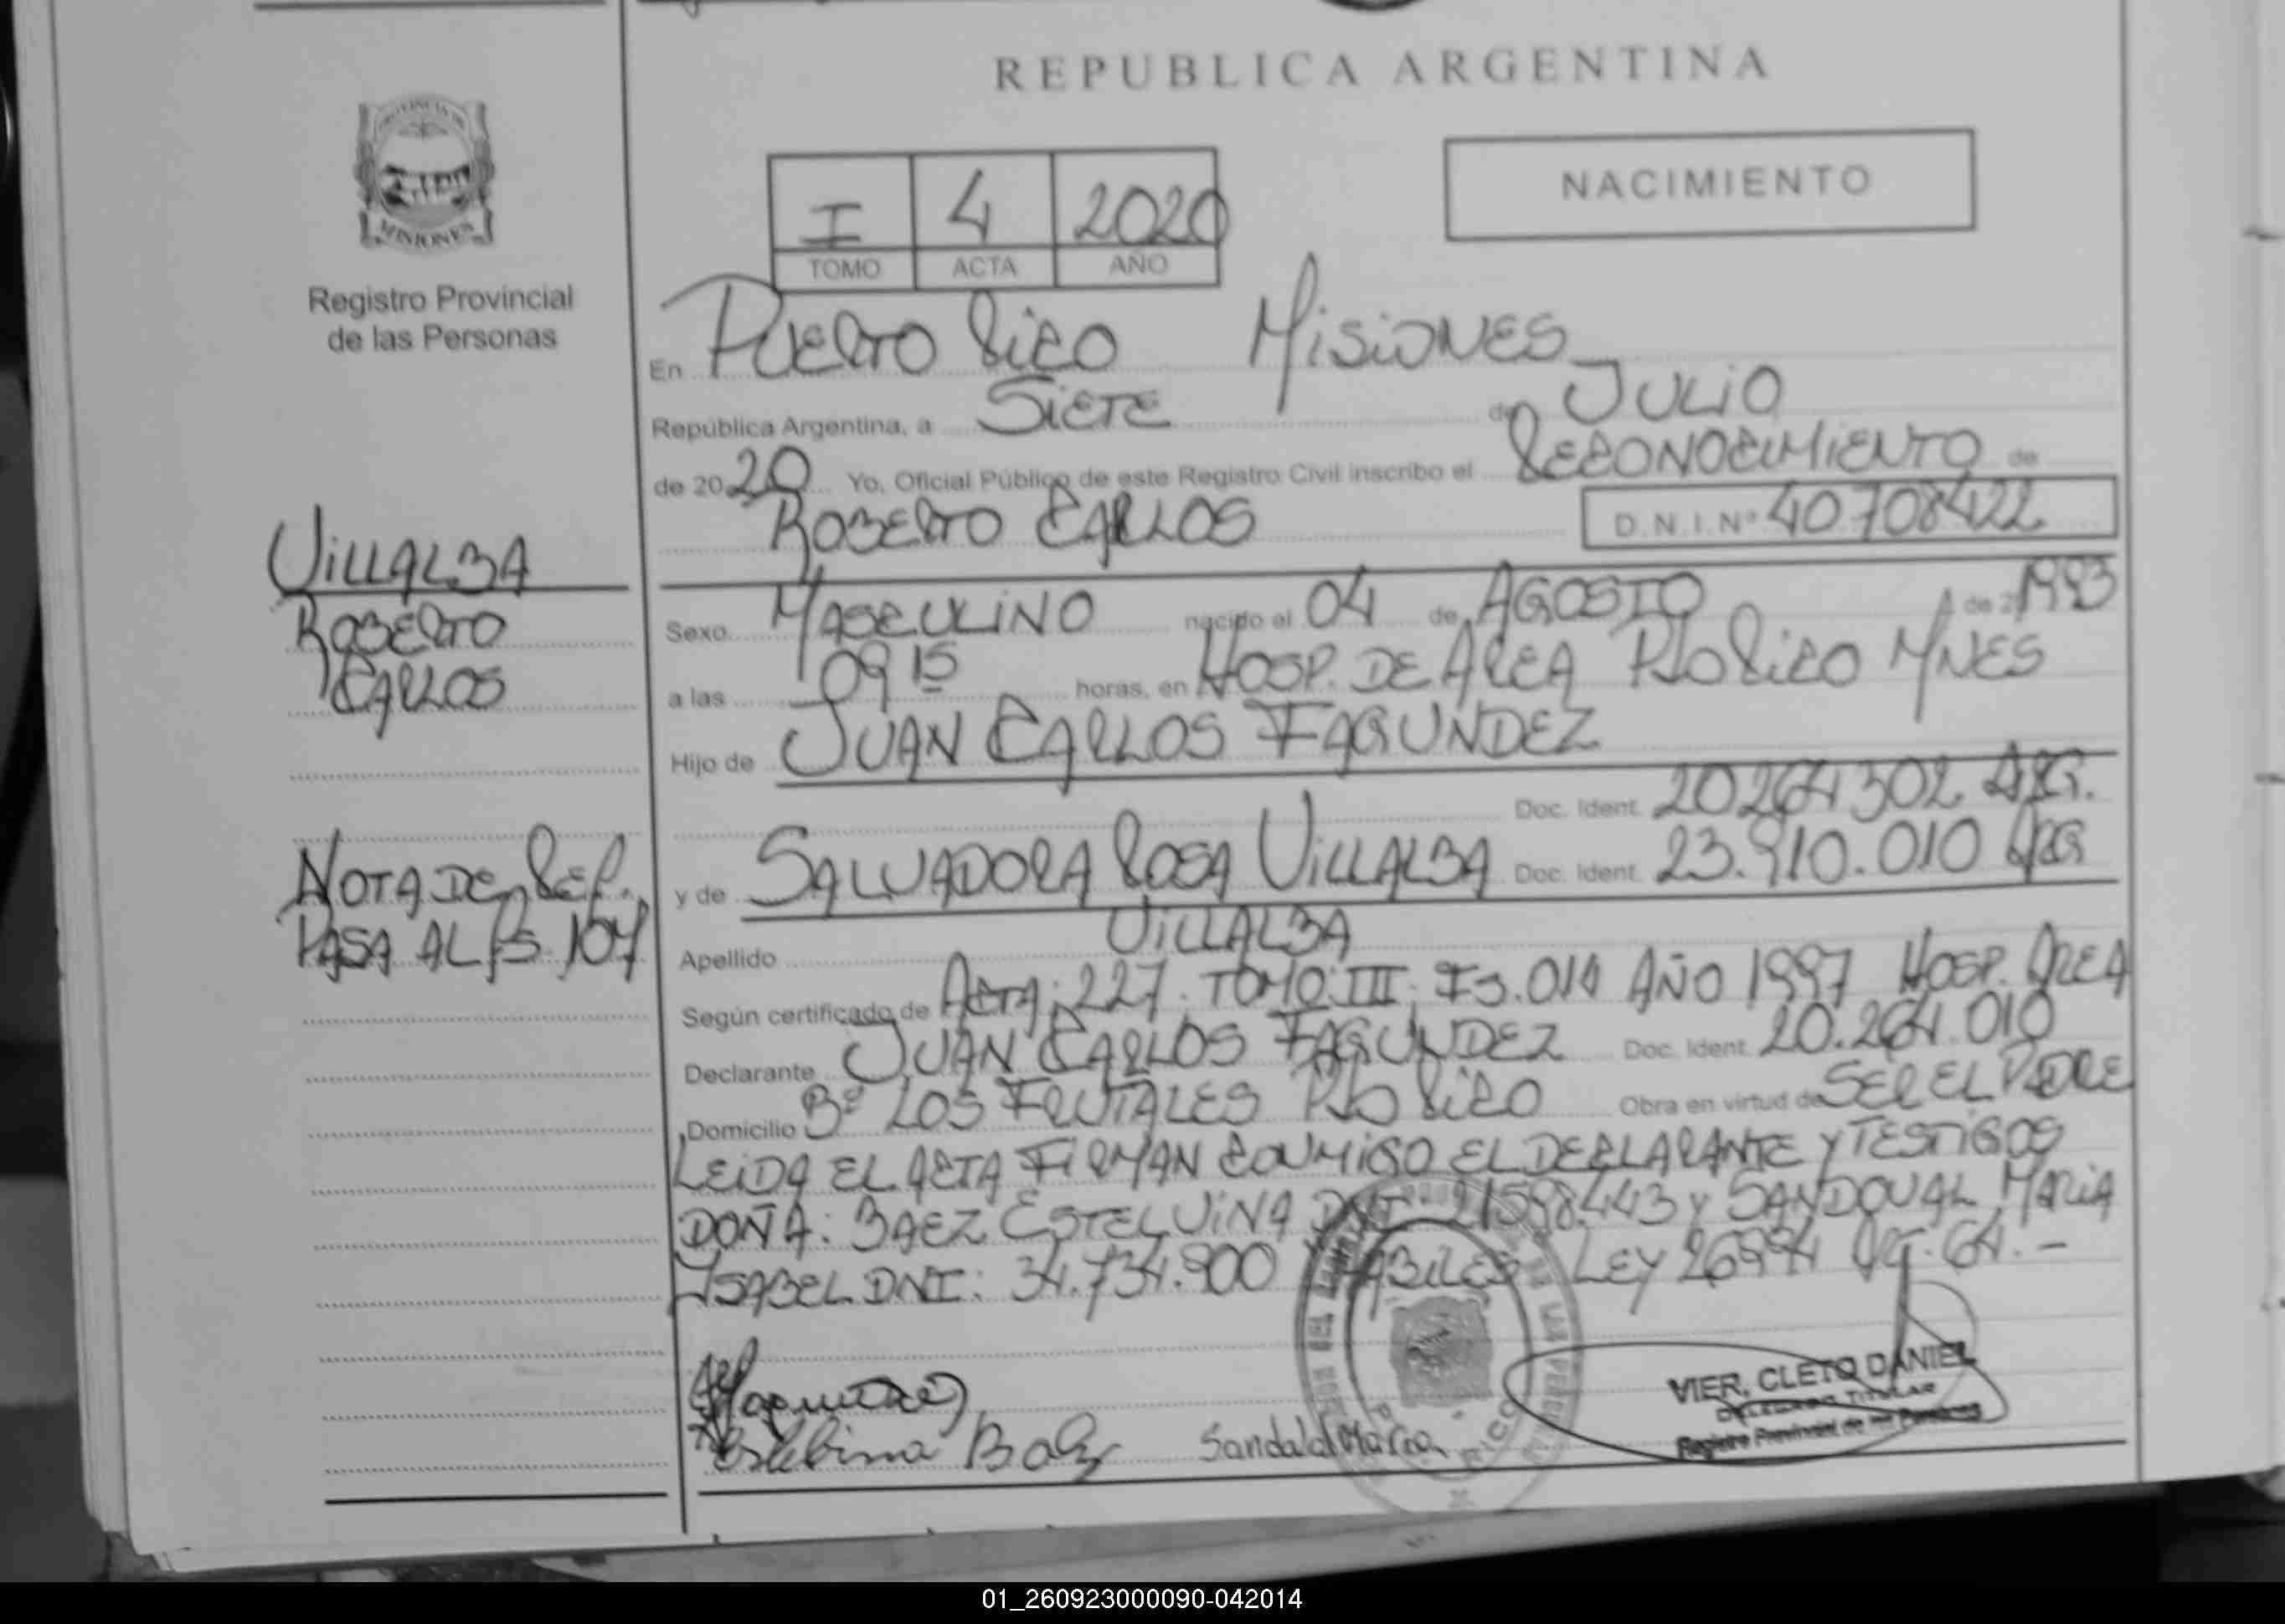 REPUBLICA ARGENTINA
MISIONES
Registro Provincial
de las Personas
I 4 2020
TOMO ACTA AÑO
NACIMIENTO
En PUERTO RICO MISIONES
República Argentina, a SIETE de JULIO
de 2020 Yo, Oficial Público de este Registro Civil inscribo el RECONOCIMIENTO de
ROBERTO CARLOS D.N.I. Nº 40708422
VILLALBA
ROBERTO
CARLOS
Sexo MASCULINO nacido el 04 de AGOSTO de 1993
a las 09 15 horas, en HOSP. DE AREA PTO RICO MNES
Hijo de JUAN CARLOS FAGUNDEZ
Doc. Ident. 20264302 ARG.
y de SALVADORA ROSA VILLALBA Doc. Ident. 23.910.010 ARG
NOTA DE REF.
PASA AL FS 107
Apellido VILLALBA
Según certificado de ACTA: 227. TOMO: III. FS. 014 AÑO 1997 HOSP. AREA
Declarante JUAN CARLOS FAGUNDEZ Doc. Ident. 20.264.010
Domicilio Bº LOS FRUTALES PTO RICO Obra en virtud de SER EL PADRE
LEIDA EL ACTA FIRMAN CONMIGO EL DECLARANTE Y TESTIGOS
DOÑA: BAEZ ESTELVINA DNI 21598.443 Y SANDOVAL MARIA
ISABEL DNI: 34.734.900 HABILES LEY 26994 64.-
VIER, CLETO DANIEL
DELEGADO TITULAR
Registro Provincial de las Personas
01_260923000090-042014